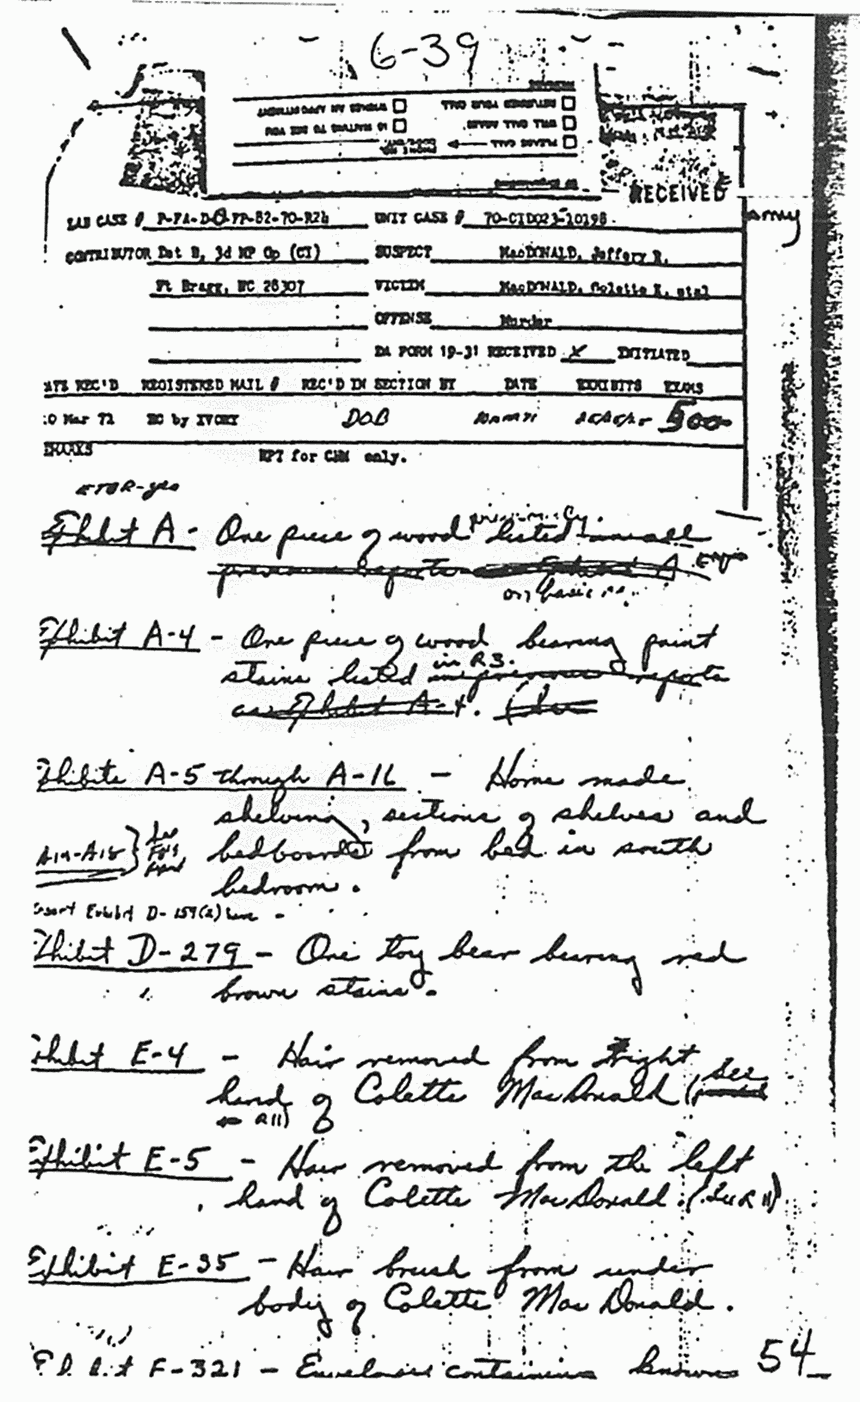 6-39
MESSAGE
RETURNED YOUR CALL WISHES AN APPOINTMENT
WILL CALL AGAIN IS WAITING TO SEE YOU
PLEASE CALL PHONE NO.
RECEIVED
LAB CASE # P-FA-D-C-FP-82-70-R26 UNIT CASE # 70-CID023-10198
Army
CONTRIBUTOR Det B, 3d MP Gp (CI) SUSPECT MacDONALD, Jeffery R.
Ft Bragg, NC 28307 VICTIM MacDONALD, Colette K. etal
OFFENSE Murder
DA FORM 19-31 RECEIVED X INITIATED
ATE REC'D REGISTERED MAIL # REC'D IN SECTION BY DATE EXHIBITS EXAMS
0 Mar 72 HC by IVORY DOB 500
EMARKS RPT for CHM only.
ETOR-yes
Exhibit A - One piece of wood previously listed in all
previous reports Exhibit A
on basic
Exhibit A-4 - One piece of wood bearing paint
stains listed in R3. in previous reports
as Exhibit A-4.
Exhibits A-5 through A-16 - Home made
shelving, sections of shelves and
A17-A18 } See bedboards from bed in south
bedroom.
Insert Exhibit D-159(2) here -
Exhibit D-279 - One toy bear bearing red
brown stains.
Exhibit E-4 - Hair removed from right
hand of Colette MacDonald (See
R11)
Exhibit E-5 - Hair removed from the left
hand of Colette MacDonald. (See R11)
Exhibit E-35 - Hair brush from under
body of Colette MacDonald.
Exhibit F-321 - Envelope containing known 54